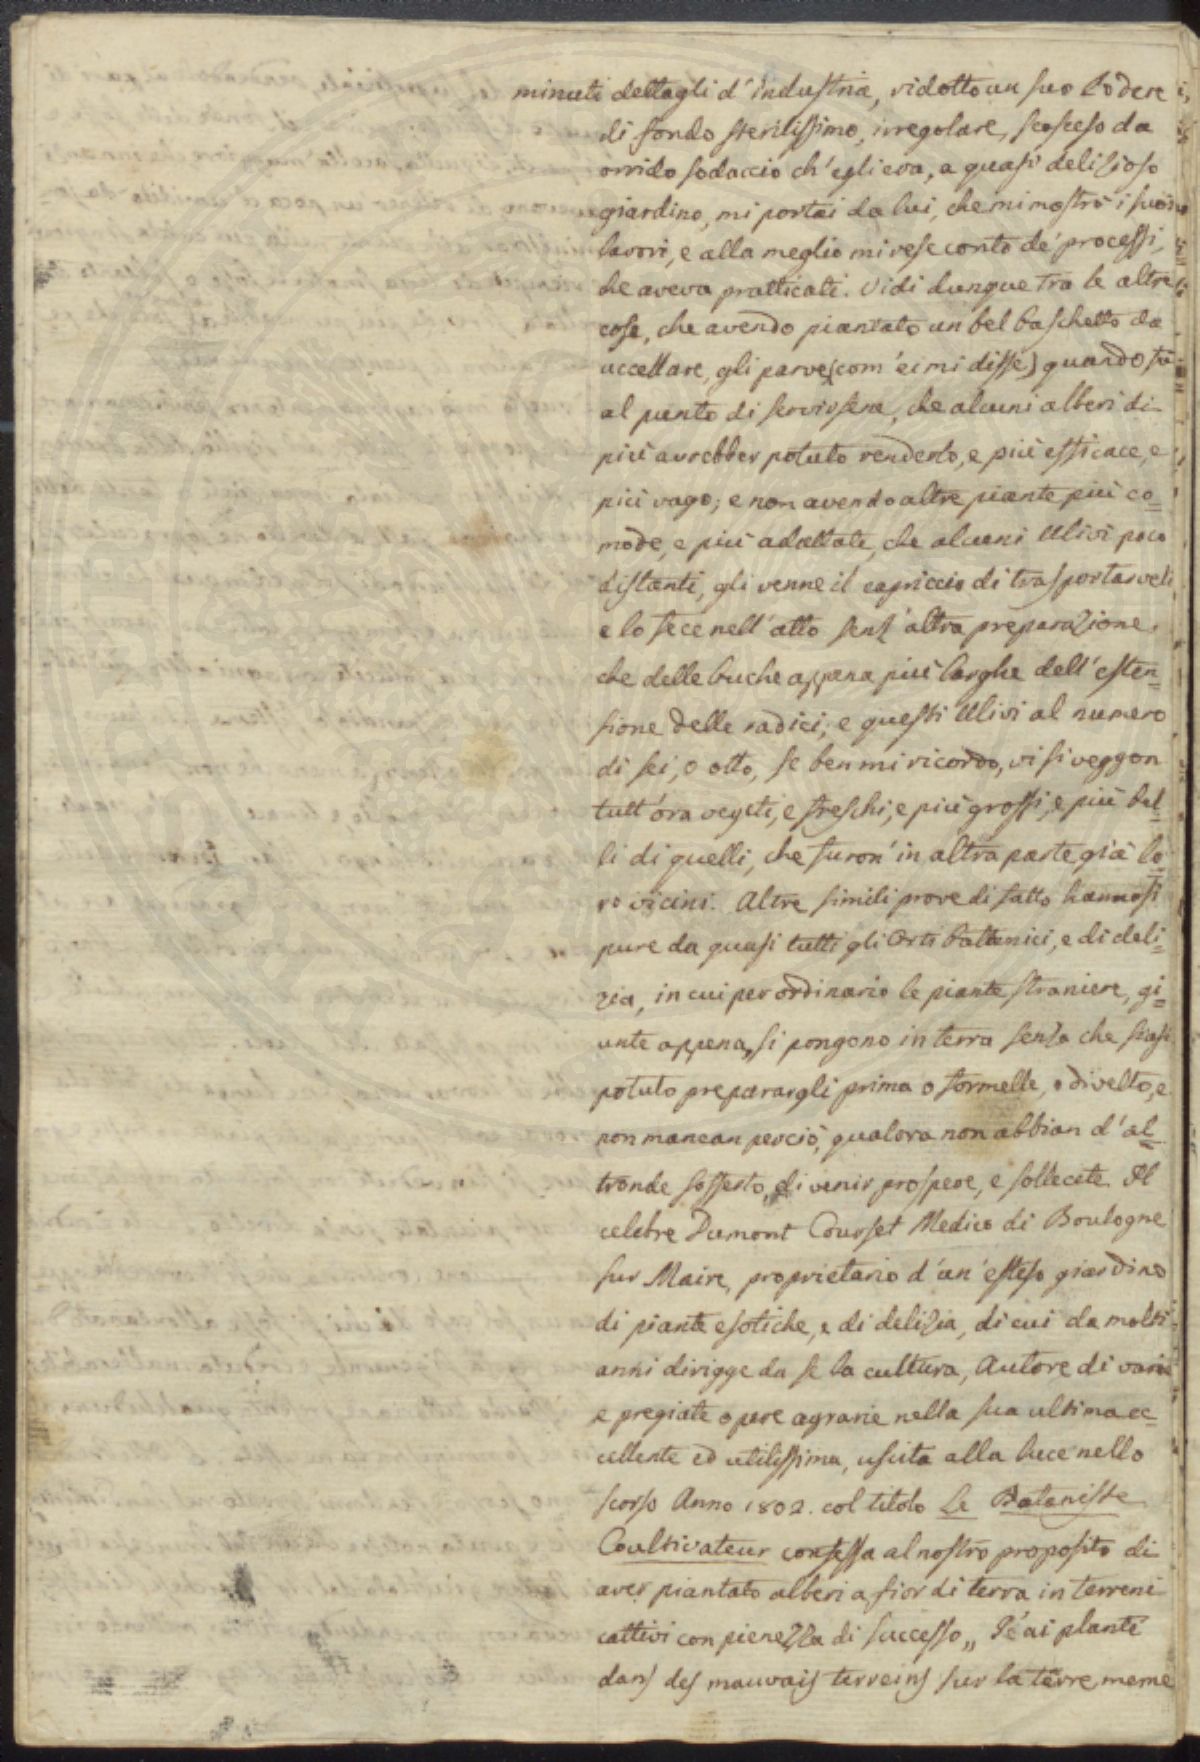 minuti dettagli d'industria, ridotto un suo Podere
di fondo sterilissimo, irregolare, scosceso da
orrido sodaccio ch'egli era, a quasi delizioso
giardino, mi portai da lui, che mi mostrò i suoi
lavori, e alla meglio mi rese conto de' processi,
che aveva pratticati. Vidi dunque tra le altre
cose, che avendo piantato un bel boschetto da
uccellare, gli parve (com'ei mi disse) quando fù
al punto di servirsene, che alcuni alberi di
più avrebber potuto renderlo, e più efficace, e
più vago; e non avendo altre piante più co=
mode, e più adattate, che alcuni Ulivi poco
distanti, gli venne il capriccio di trasportarveli
e lo fece nell'atto senz'altra preparazione
che delle buche appena più larghe dell'esten=
sione delle radici; e questi Ulivi al numero
di sei, o otto, se ben mi ricordo, vi si veggon
tutt'ora vegeti, e freschi, e più grossi, e più bel=
li di quelli, che furon' in altra parte già lo=
ro vicini. Altre simili prove di fatto hannosi
pure da quasi tutti gli Orti bottanici, e di deli=
zia, in cui per ordinario le piante straniere, gi=
unte appena, si pongono in terra senza che siasi
potuto preparargli prima o formelle, o divelto, e
non mancan perciò, qualora non abbian d'al=
tronde sofferto, di venir prospere, e sollecite. Il
celebre Dumont Courset Medico di Boulogne
sur Maire, proprietario d'un'esteso giardino
di piante esotiche, e di delizia, di cui da molti
anni dirigge da se la cultura, Autore di varie
e pregiate opere agrarie nella sua ultima ec=
cellente ed utilissima, uscita alla luce nello
scorso Anno 1802. col titolo Le Botaniste
Coultivateur confessa al nostro proposito di
aver piantato alberi a fior di terra in terreni
cattivi con pienezza di successo „ Jé ai planté
dans des mauvais terreins sur la terre meme